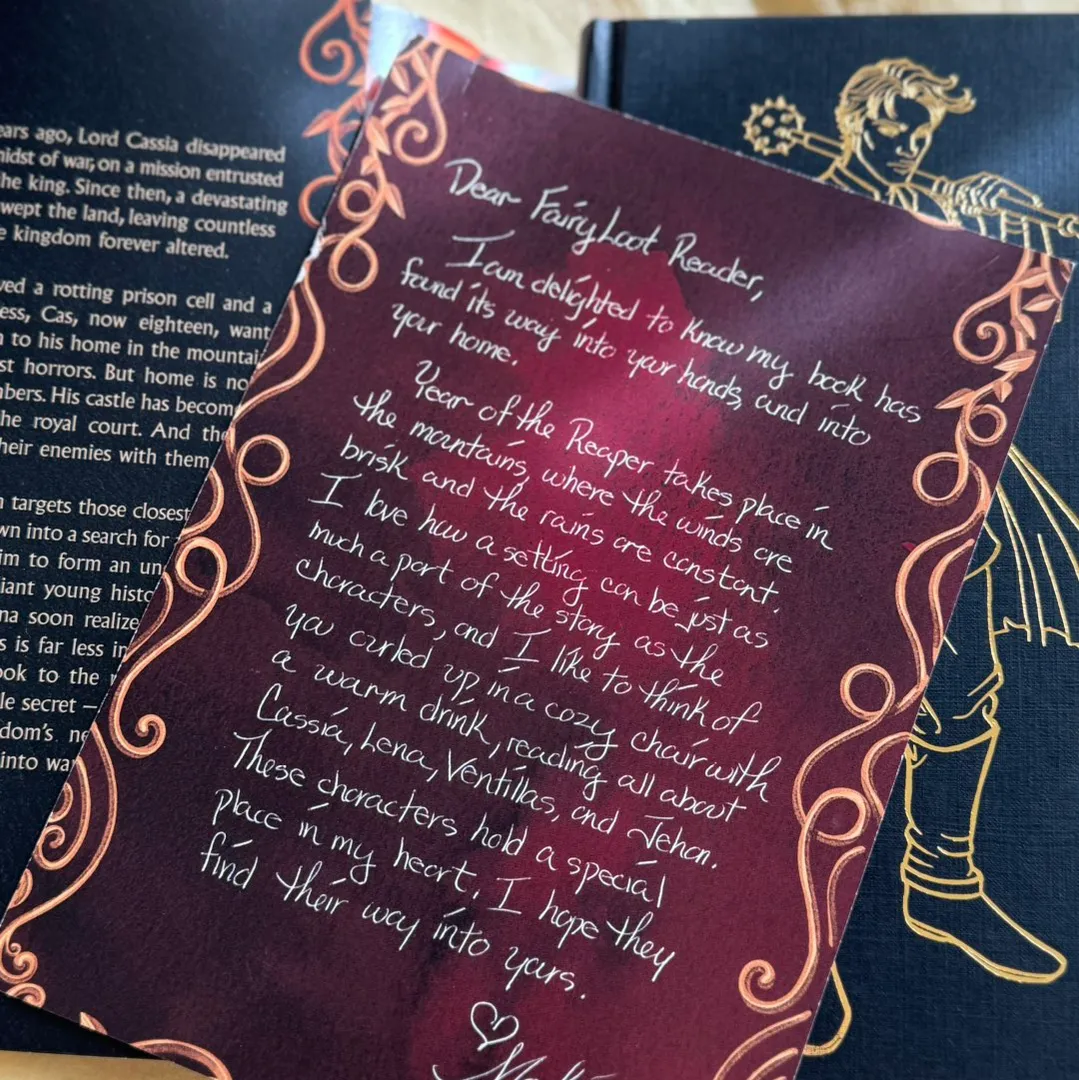 ears ago, Lord Cassia disappeared
midst of war, on a mission entrusted
he king. Since then, a devastating
wept the land, leaving countless
e kingdom forever altered.
ved a rotting prison cell and a
ess, Cas, now eighteen, want
n to his home in the mountai
st horrors. But home is no
nbers. His castle has becom
the royal court. And the
heir enemies with them
n targets those closest
wn into a search for
im to form an un
iant young histo
na soon realize
s is far less in
ook to the
le secret –
dom's ne
into war
Dear FairyLoot Reader,
I am delighted to know my book has
found its way into your hands, and into
your home.
Year of the Reaper takes place in
the mountains, where the winds are
brisk and the rains are constant.
I love how a setting can be just as
much a part of the story as the
characters, and I like to think of
you curled up in a cozy chair with
a warm drink, reading all about
Cassia, Lena, Ventillas, and Jehan.
These characters hold a special
place in my heart. I hope they
find their way into yours.